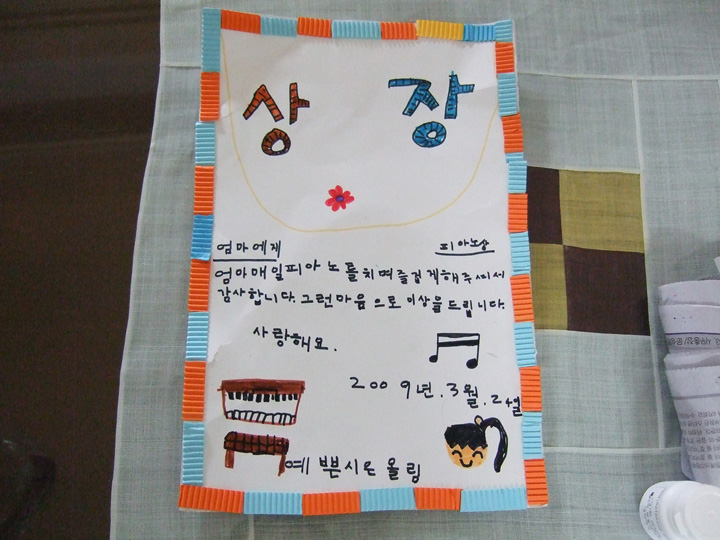 상 장
엄마에게 피아노상
엄마매일피아노를치며즐겁게해주셔서
감사합니다. 그런마음으로이상을드립니다.
사랑해요.
2009년.3월.24일
예쁜시은올림